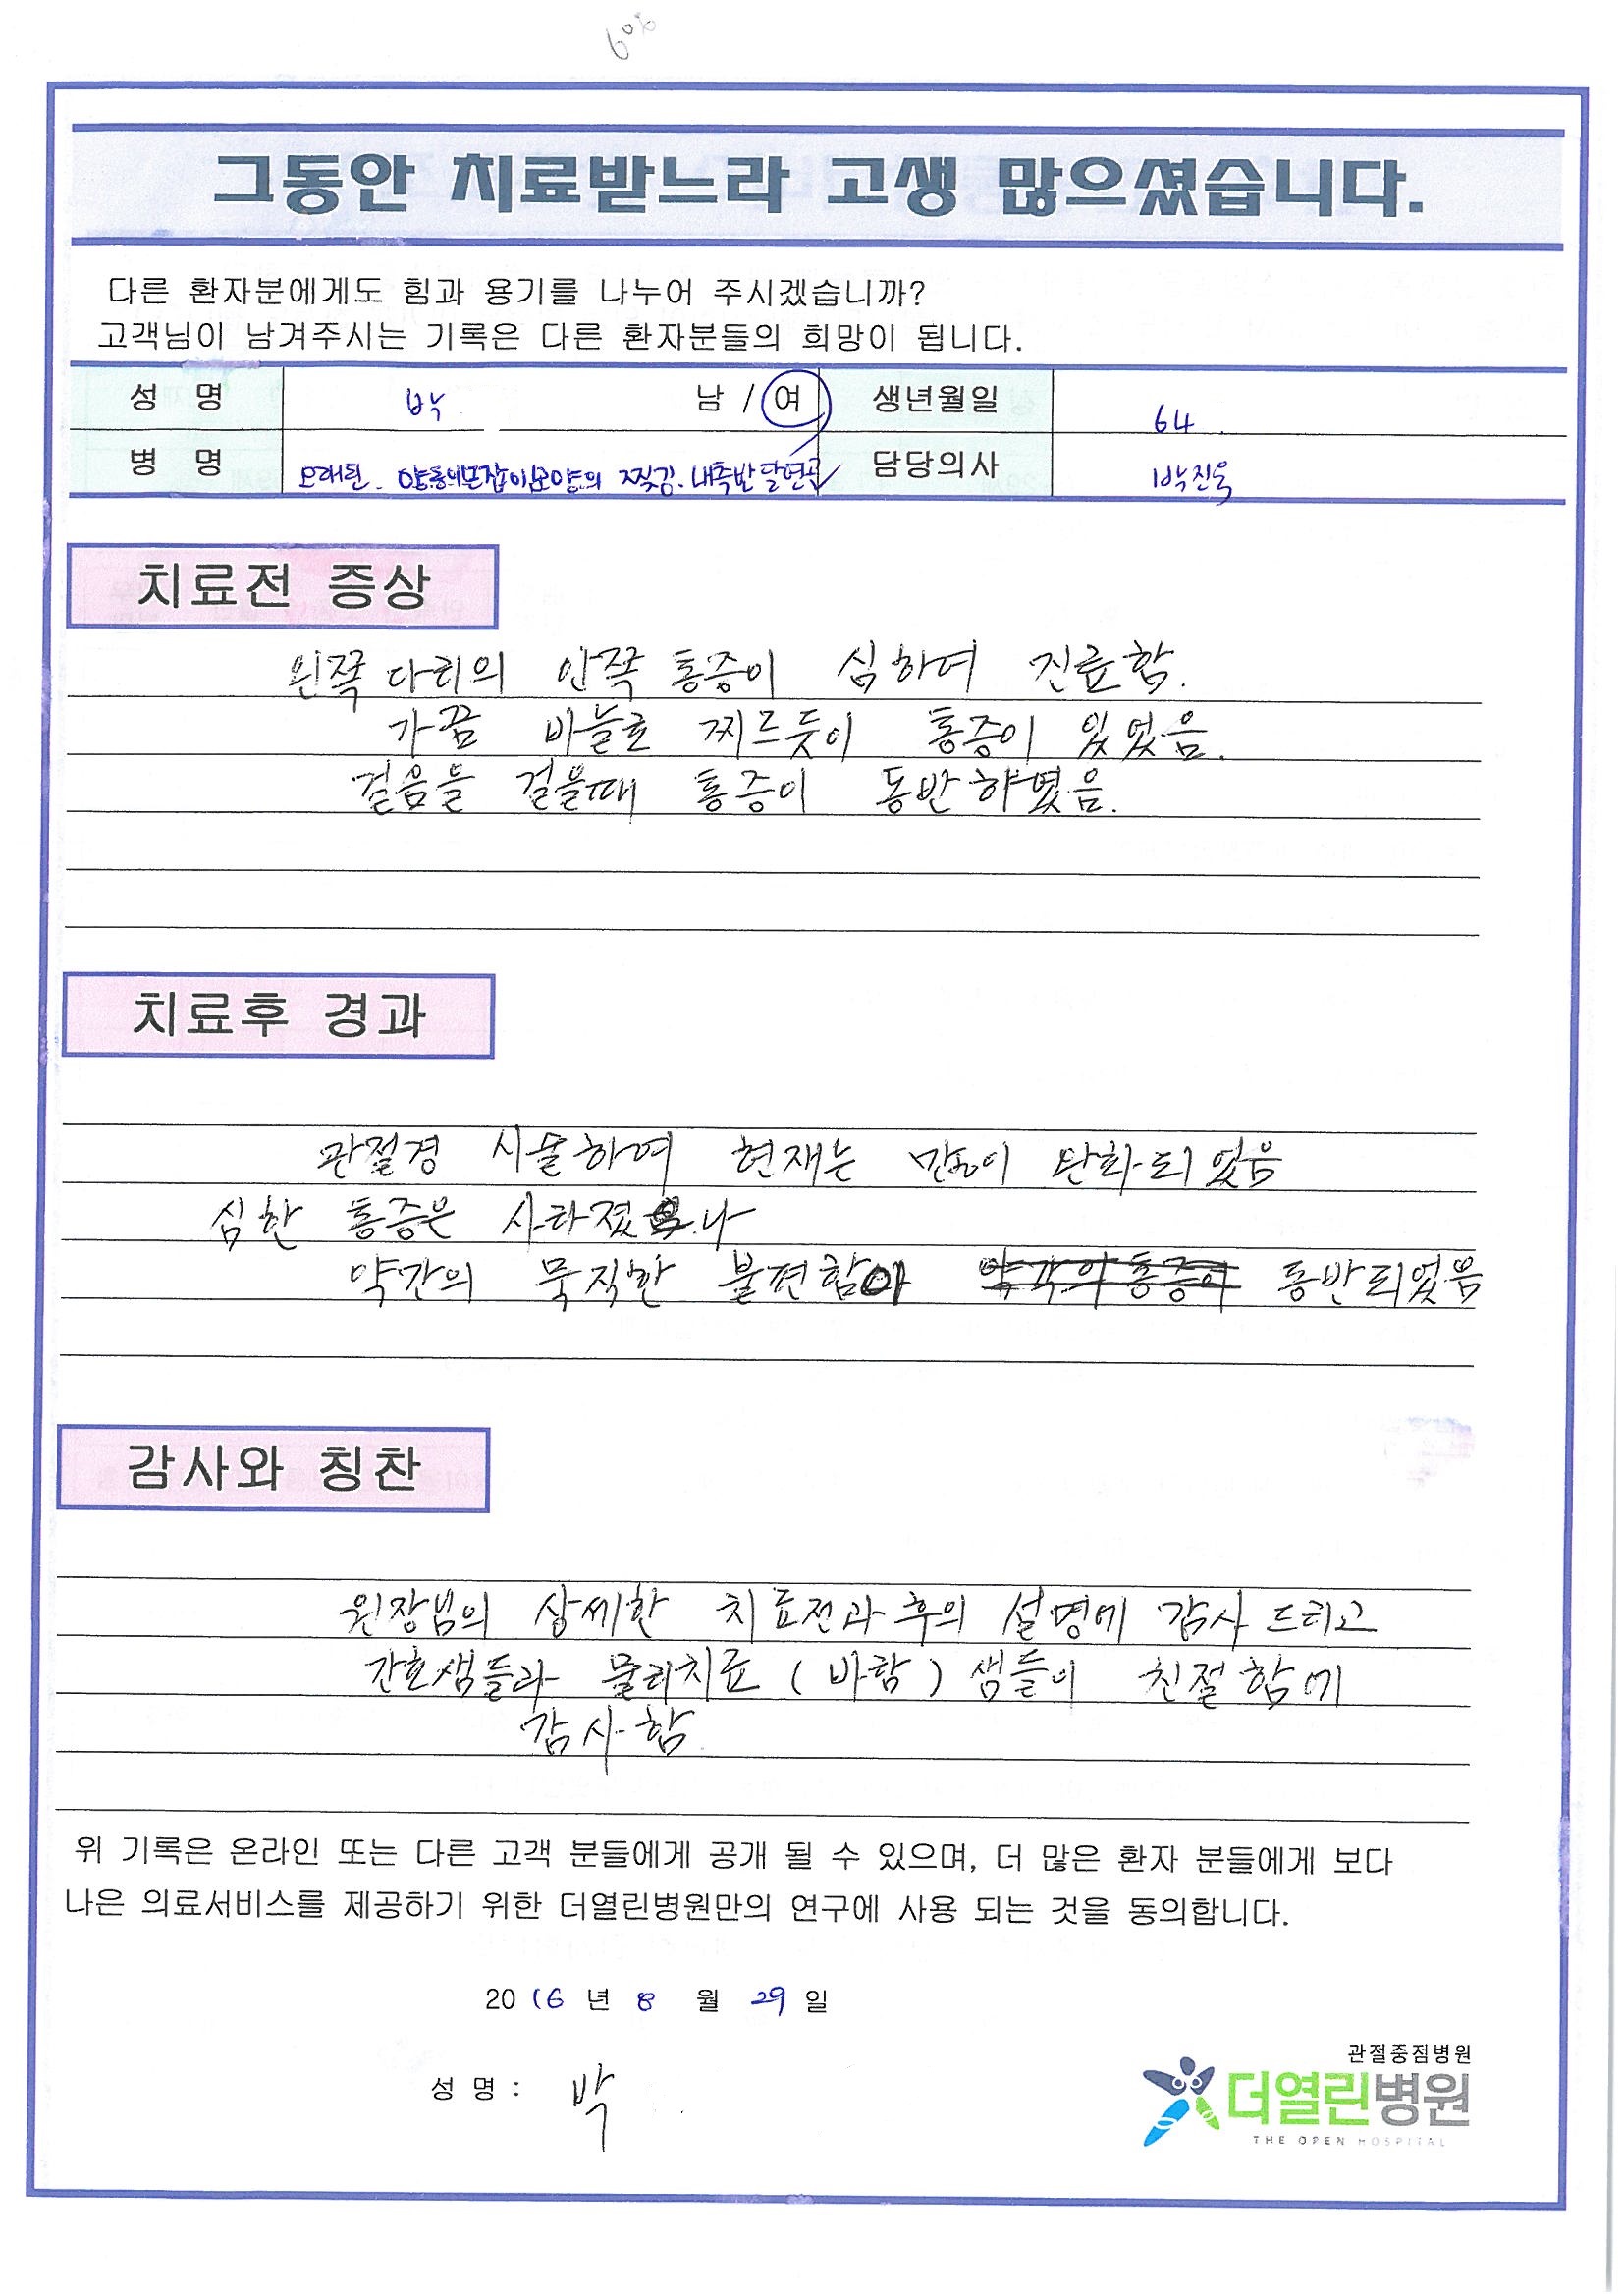 60%
그동안 치료받느라 고생 많으셨습니다.
다른 환자분에게도 힘과 용기를 나누어 주시겠습니까?
고객님이 남겨주시는 기록은 다른 환자분들의 희망이 됩니다.
성 명 박 남 / 여 생년월일 64
병 명 오래된. 양동의손잡이모양의 찢김. 내측반달연골 담당의사 박진욱
치료전 증상
왼쪽 다리의 안쪽 통증이 심하여 진료함.
가끔 바늘로 찌르듯이 통증이 있었음.
걸음을 걸을때 통증이 동반하였음.
치료후 경과
관절경 시술하여 현재는 많이 완화되었음
심한 통증은 사라졌으나
약간의 묵직한 불편함이 약간의 통증이 동반되었음
감사와 칭찬
원장님의 상세한 치료전과 후의 설명에 감사 드리고
간호샘들과 물리치료 (바함) 샘들이 친절함에
감사함
위 기록은 온라인 또는 다른 고객 분들에게 공개 될 수 있으며, 더 많은 환자 분들에게 보다
나은 의료서비스를 제공하기 위한 더열린병원만의 연구에 사용 되는 것을 동의합니다.
2016 년 8 월 29 일
성 명 : 박
관절중점병원
더열린병원
THE OPEN HOSPITAL